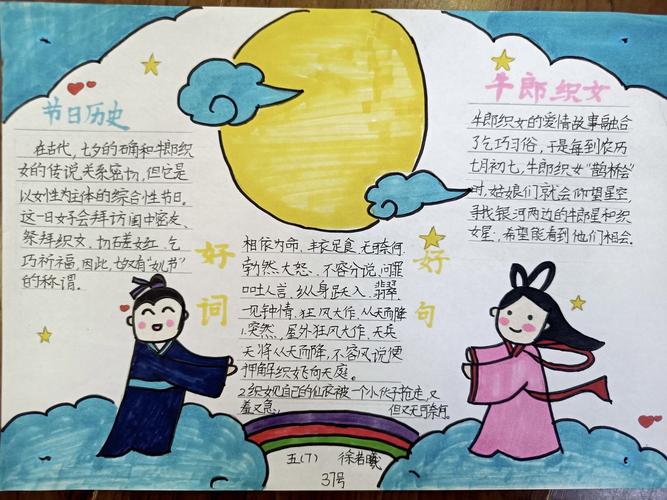 节日历史
在古代，七夕的确和牛郎织
女的传说关系密切，但它是
以女性为主体的综合性节日。
这一日女子会拜访闺中密友、
祭拜织女、切磋女红、乞
巧祈福，因此，七夕又有“女儿节”
的称谓。
好词
相依为命、丰衣足食、无可奈何、
勃然大怒、不容分说、
口吐人言、纵身跃入、翡翠、
一见钟情、狂风大作、从天而降
好句
1.突然，屋外狂风大作，天兵
天将从天而降，不容分说便
押解织女飞向天庭。
2.织女见自己的仙衣被一个小伙子抢走，又
羞又急，但又无可奈何。
牛郎织女
牛郎织女的爱情故事融合
了乞巧习俗，于是每到农历
七月初七，牛郎织女“鹊桥会”
时，姑娘们就会仰望星空，
寻找银河两边的牛郎星和织
女星，希望能看到他们相会。
五(7) 徐若曦
37号